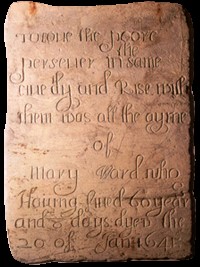 To loue the poore
the
perseuer in same
liue dy and Rise with
them was all the ayme
of
Mary Ward who
Hauing liued 60 year
and 8 days dyed the
20 of Jan 1645